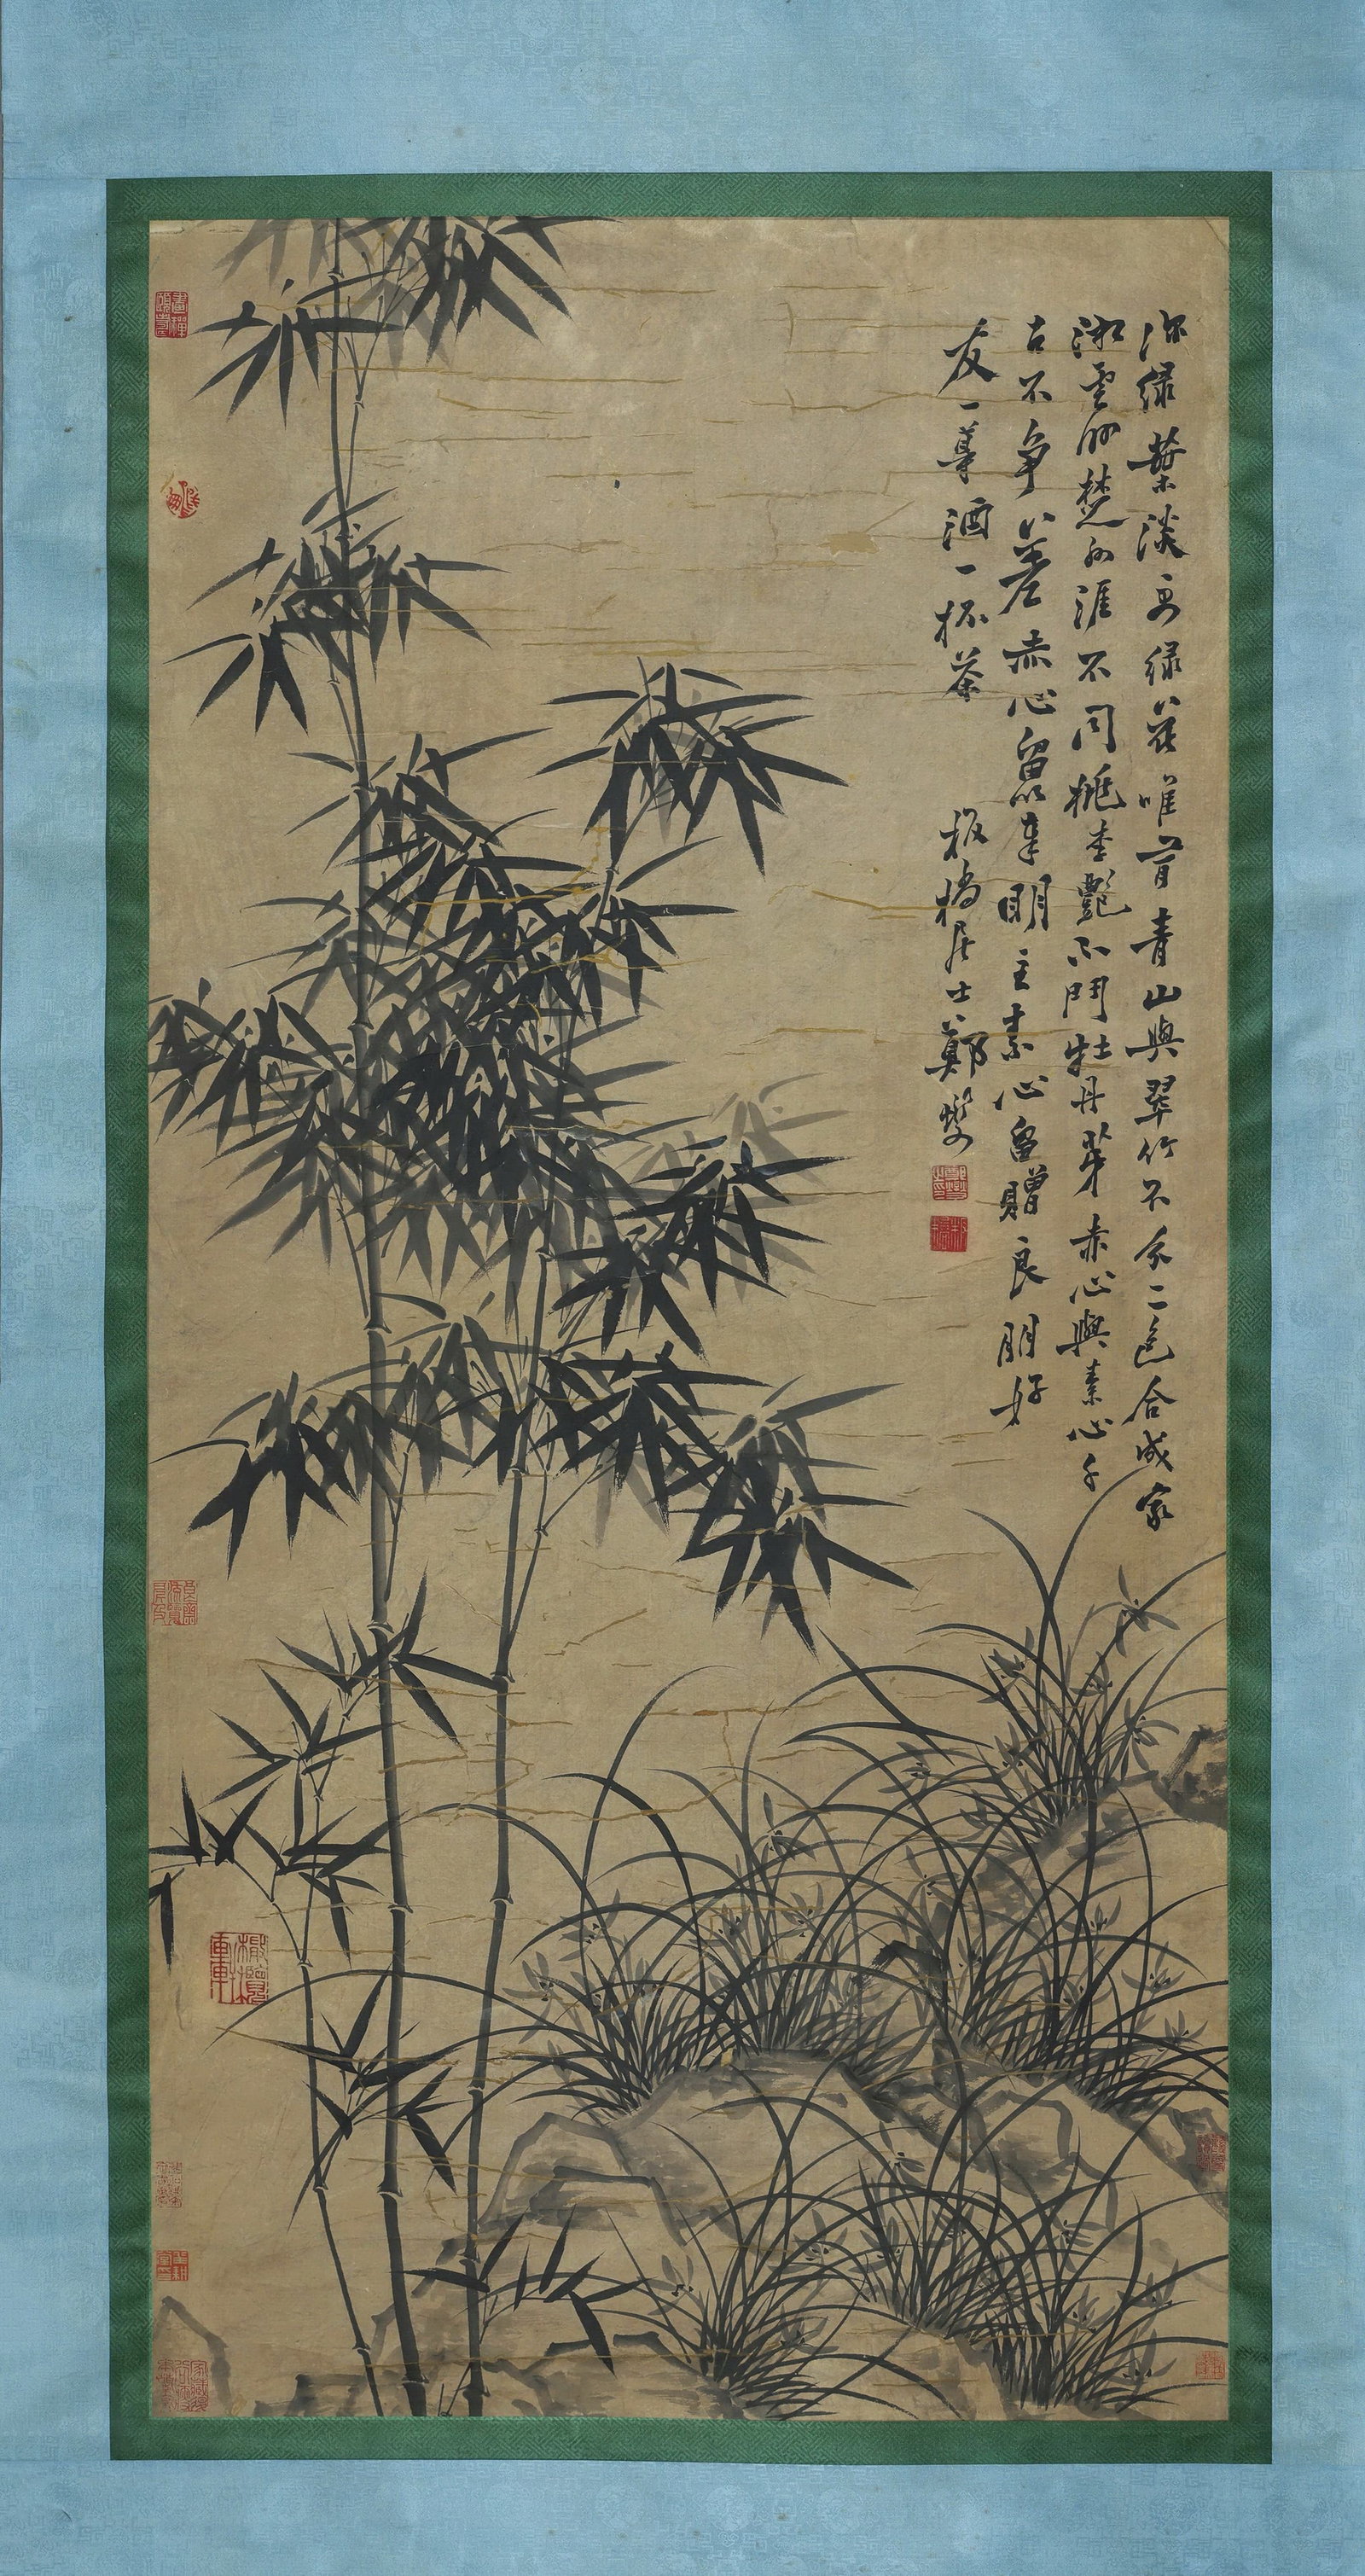 深绿葉淡绿花唯有青山與翠竹不分二色合成家
湘雲楚水涯不同桃李艷不鬥牡丹芽赤心與素心千
古不争差赤心留以奉明主素心留贈良朋好
友一尊酒一杯茶
板橋居士鄭燮